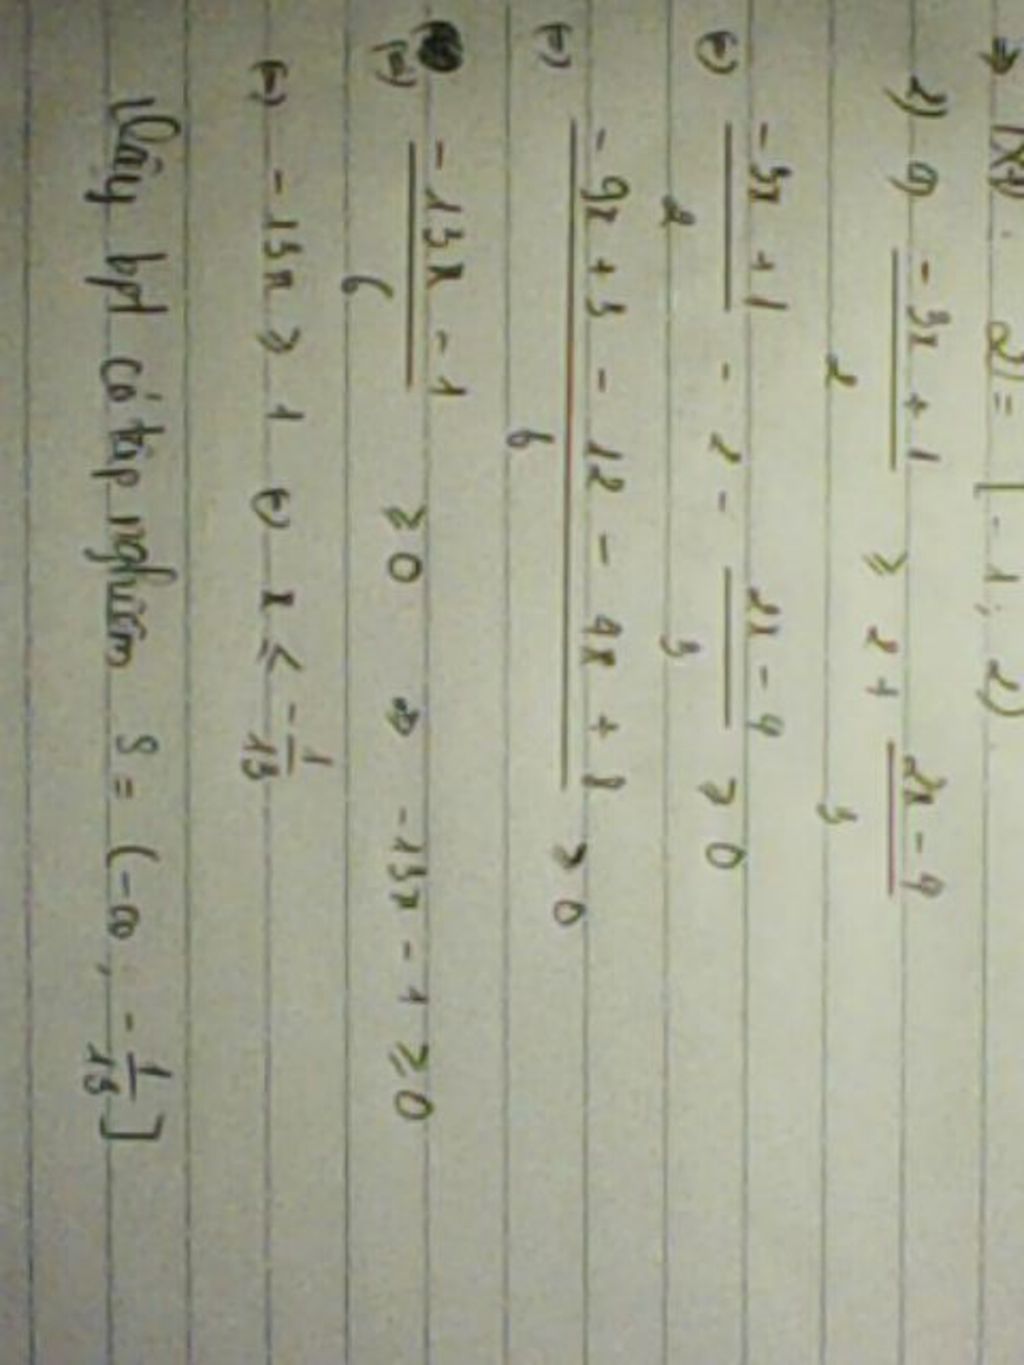 ⇒ TXĐ: D = [-1; 2)
2) a) (-3x + 1)/2 ≥ 2 + (2x - 4)/3
⇔ (-3x + 1)/2 - 2 - (2x - 4)/3 ≥ 0
⇔ (-9x + 3 - 12 - 4x + 8)/6 ≥ 0
⇔ (-13x - 1)/6 ≥ 0 ⇒ -13x - 1 ≥ 0
⇔ -13x ≥ 1 ⇔ x ≤ -1/13
Vậy bpt có tập nghiệm S = (-∞; -1/13]